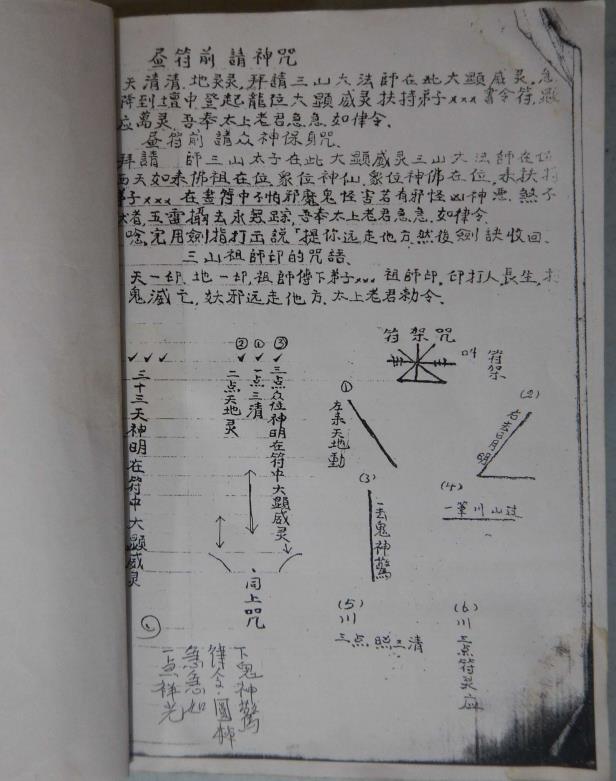 昼符前請神咒
天清清.地灵灵,拜請三山大法師在此大顕感灵.急
降到壇中登起龍位大顕威灵扶持弟子xxx書令符,顕
应萬灵.吾奉太上老君急急.如律令.
昼符前請众神保身咒.
拜請 師三山太子在此大顕感灵三山大法師在位
西天如來佛祖在位,众位神仙,众位神佛在位,來扶持
弟子xxx在畫符中不怕邪魔鬼怪害若有邪怪凶神悪.煞不
者,五雷攝去永無踪.吾奉太上老君急急.如律令.
唸完用劍指打出説「提你远走他方.然後劍訣收回.
三山祖師印的咒語.
天一印.地一印,祖師傳下弟子xxx祖師印.印打人長生,打
鬼滅亡,妖邪远走他方.太上老君勅令.
符架咒
叫符架
② ① ③
✓ ✓ ✓
三点众位神明在符中大顕感灵
一点三清
二点天地灵
✓ ✓ ✓
三十三天神明在符中大顕感灵
同上咒
(1)
左去天地動
(2)
右去日月明
(3)
一去鬼神驚
(4)
一筆川山过
(5)
川
三点照三清
(6)
川
三点符灵应
下鬼神驚
律令.圓
急急如
一点祥光